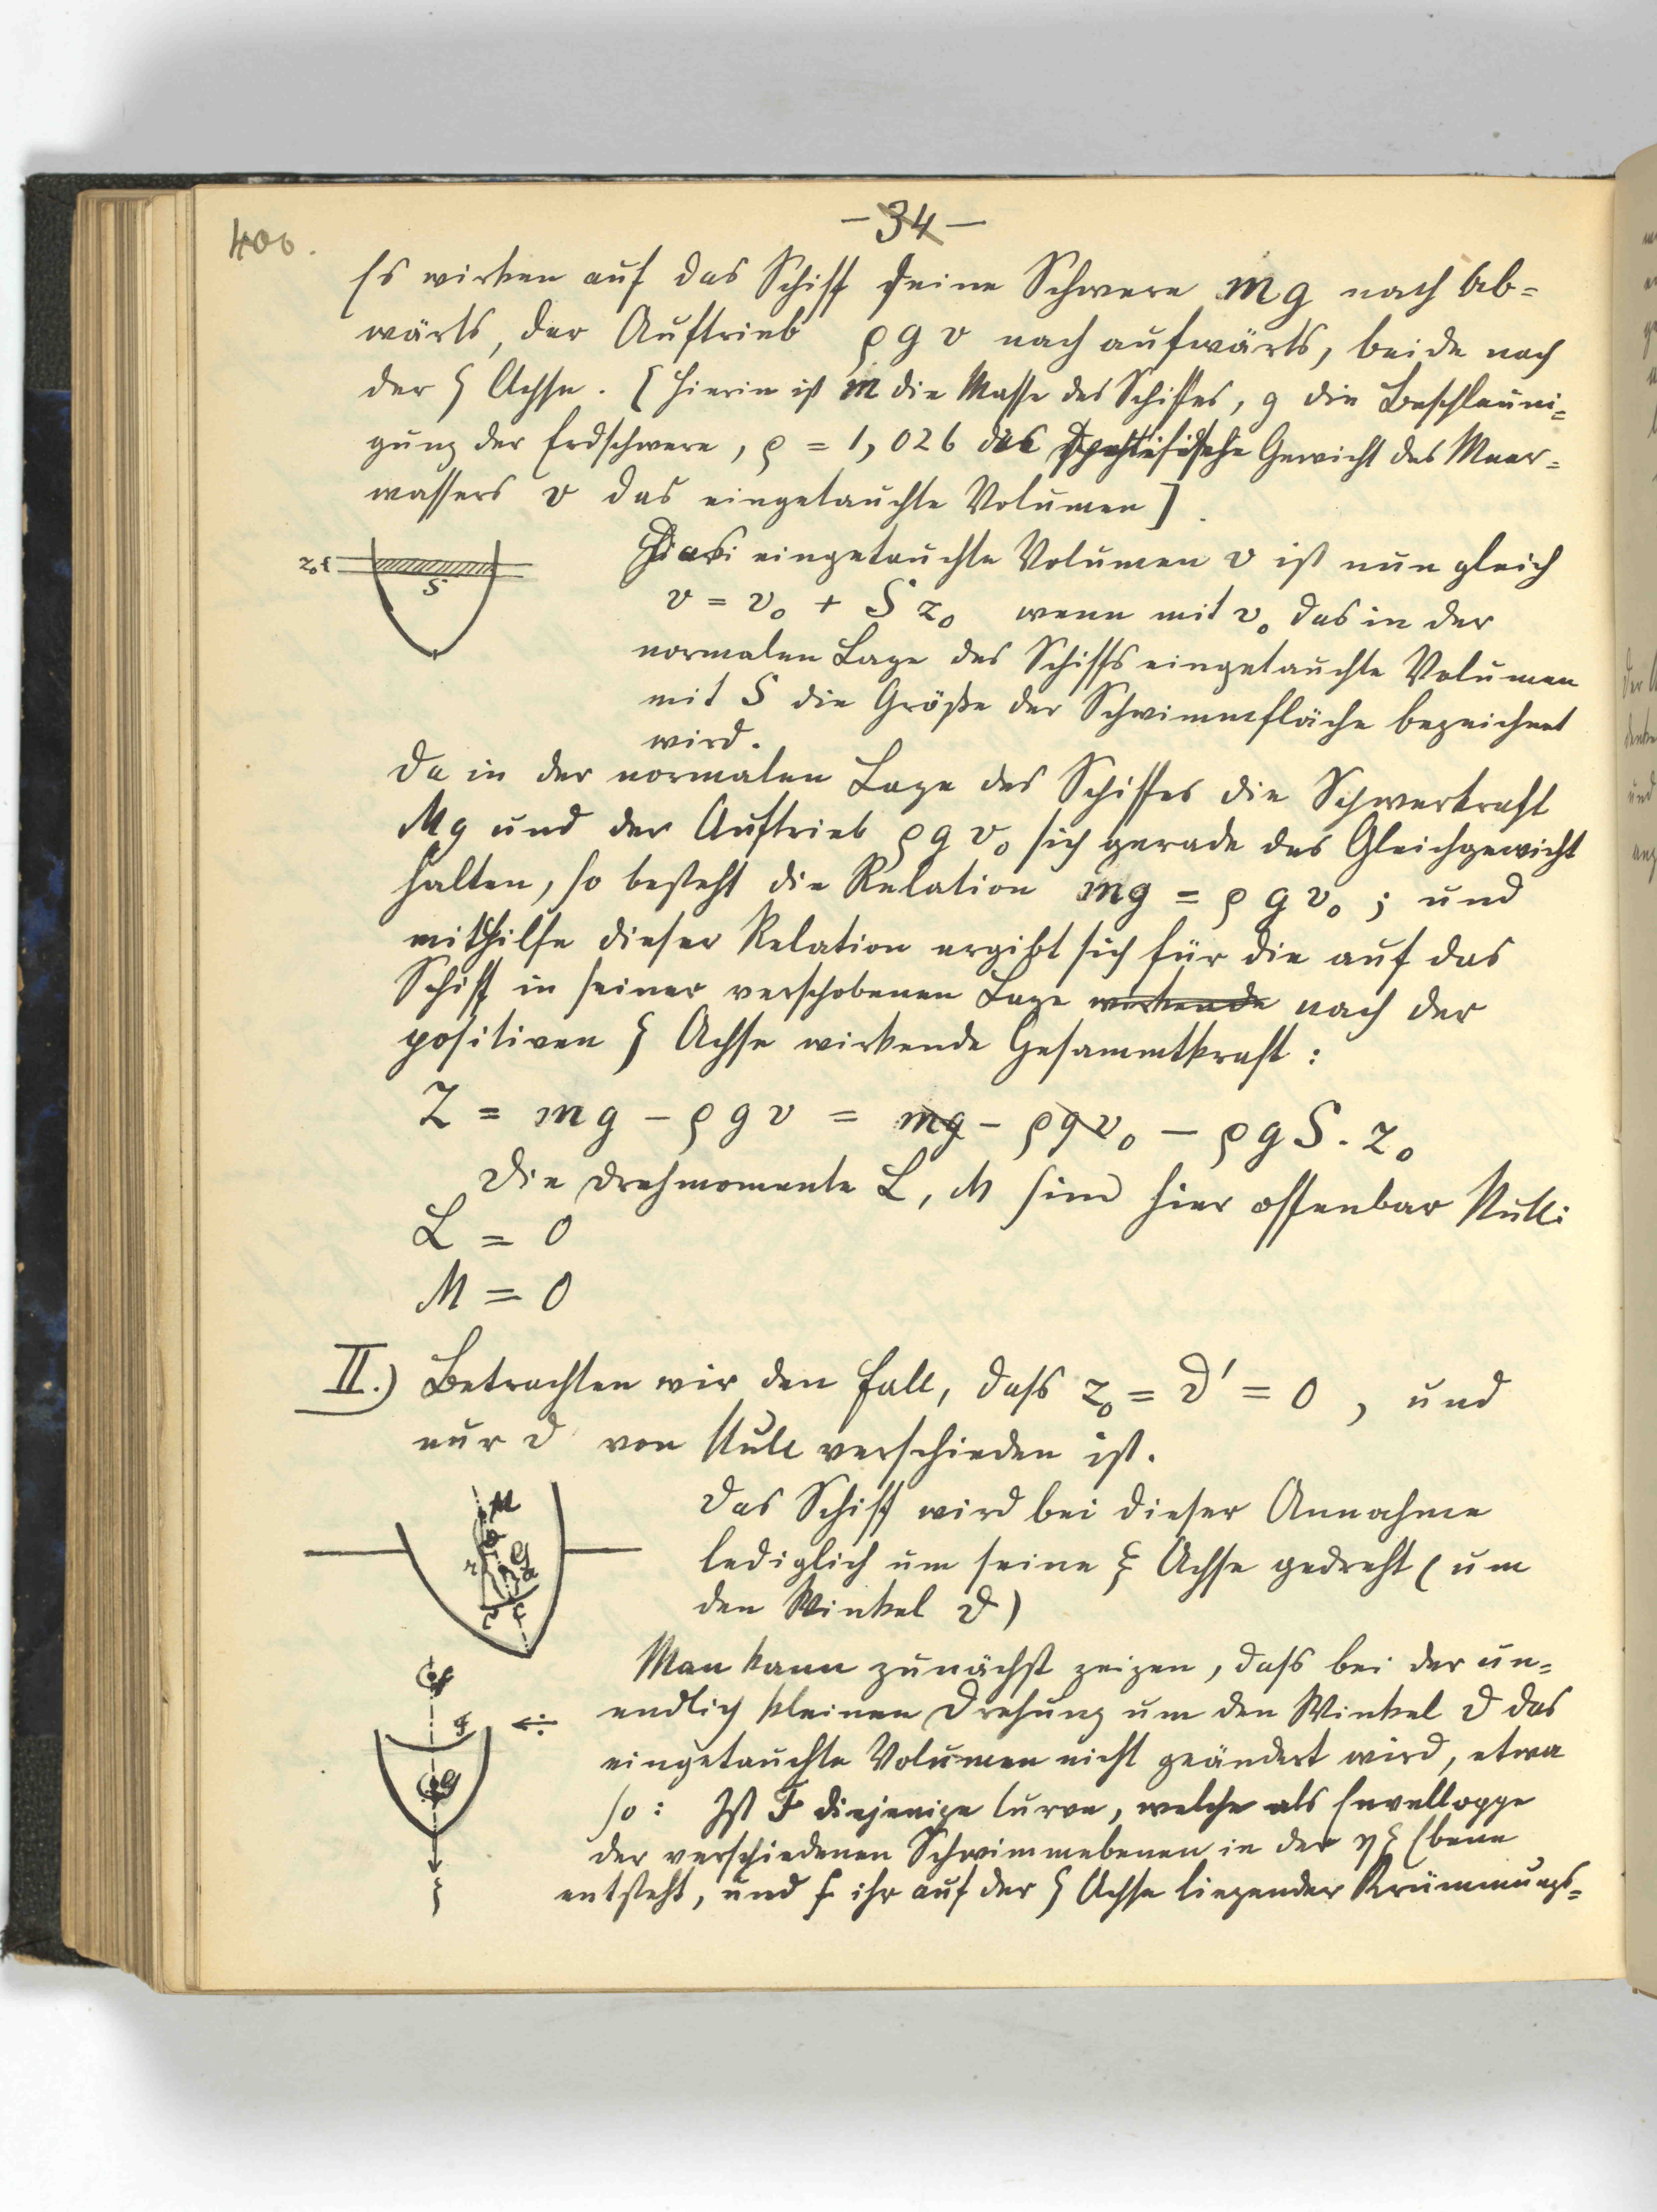 400.
- 34 -
Es wirken auf das Schiff seine Schwere mg nach Ab=
wärts, der Auftrieb ρ g v nach aufwärts, beide nach
der ζ Achse. [Hierin ist m die Masse des Schiffes, g die Beschleuni=
gung der Erdschwere, ρ = 1,026 das spezifische Gewicht des Meer=
wassers v das eingetauchte Volumen].
z₀
S
Das eingetauchte Volumen v ist nun gleich
v = v₀ + S z₀ wenn mit v₀ das in der
normalen Lage des Schiffs eingetauchte Volumen
mit S die Größe der Schwimmfläche bezeichnet
wird.
Da in der normalen Lage des Schiffes die Schwerkraft
Mg und der Auftrieb ρ g v₀ sich gerade das Gleichgewicht
halten, so besteht die Relation mg = ρ g v₀ ; und
mithilfe dieser Relation ergibt sich für die auf das
Schiff in seiner verschobenen Lage wirkende nach der
positiven ζ Achse wirkende Gesammtkraft :
Z = mg - ρ g v = mg - ρ g v₀ - ρ g S . z₀
Die Drehmomente L, M sind hier offenbar Null:
L = 0
M = 0
II.) Betrachten wir den Fall, dass z₀ = ϑ' = 0 , und
nur ϑ von Null verschieden ist.
M
Das Schiff wird bei dieser Annahme
lediglich um seine ξ Achse gedreht (um
den Winkel ϑ)
Man kann zunächst zeigen, dass bei der un=
endlich kleinen Drehung um den Winkel ϑ das
eingetauchte Volumen nicht geändert wird, etwa
so : Ist F diejenige Curve, welche als Envelloppe
der verschiedenen Schwimmebenen in der ηζ Ebene
entsteht, und f ihr auf der ζ Achse liegender Krümmungs=
f
F
G
ζ